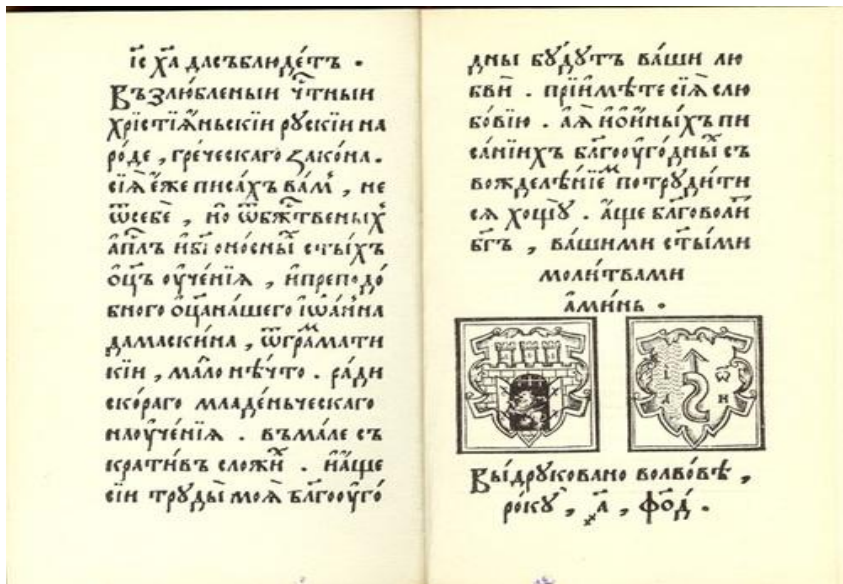 і҃с х҃а дасъблюде́тъ .
Възлю́бленыи ч҃тныи
хрⷭ҇тїа́ньскїи рꙋскїи на
ро́де , гре́ческаго ѕако́на .
сїѧ̀ є́же писа́хъ ва́мⸯ , не
ѿсебѐ , но̀ ѿбж҃твеныⷯ
а҆п҃лъ и҆бг҃оно́сныⷯ ст҃ы́хъ
о҆ц҃ъ оу҆че́нїѧ , и҆преподо́
бного о҆ц҃а на́шего і҆ѡа́нна
дамаски́на , ѿгра́ⷨмати
кїи , ма́ло нѣ́что . ра́ди
ско́раго младе́ньческаго
наоуче́нїѧ . въма́ле съ
крати́въ сложи́ⷯ . и҆а́ще
сїи трꙋды̀ моѧ̀ бл҃гооуго́
дны бꙋ́дꙋтъ ва́ши лю
бвѝ . прїиⷨмѣ́те сїѧ̀ слю
бо́вїю . а҆́ѧ и҆о҆и҆ны́хъ пи
са́нїихъ бл҃гооуго́дныⷯ съ
вожделѣ́нїеⷨ потрꙋди́ти
сѧ хощꙋ̀ . а҆́ще бл҃говоли́ⷮ
бг҃ъ , ва́шими ст҃ы́ми
моли́твами
а҆ми́нь .
І
Ѡ
А
Н
Вы́дрꙋковано волво́вѣ ,
ро́кꙋ , ҂а҃ , фо҃д .